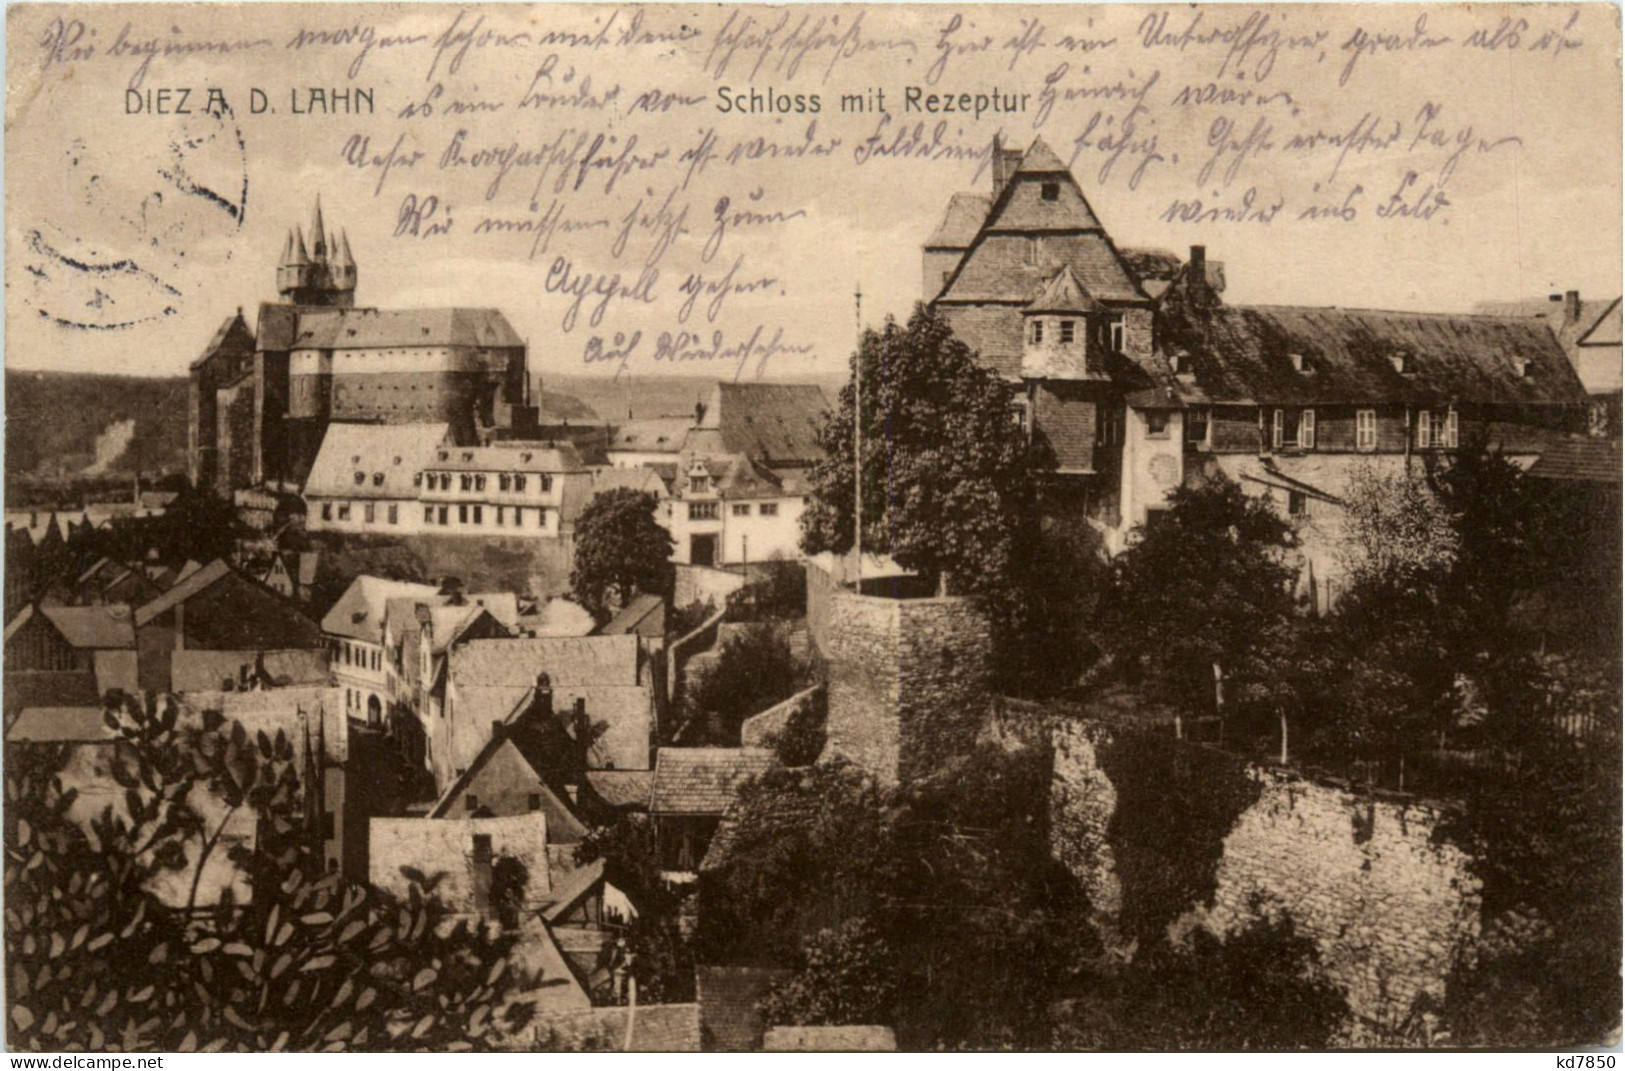 Wir beginnen morgen schon mit dem scharf schießen. Hier ist ein Unteroffizier, grade als ob
DIEZ A. D. LAHN
Schloss mit Rezeptur
es ein Bruder von Heinrich wäre.
Unser Korporalschführer ist wieder Felddienst fähig. Geht ernster Tage
Wir müssen jetzt zum
wieder ins Feld.
Appell gehen.
Auf Wiedersehen.
kd7850